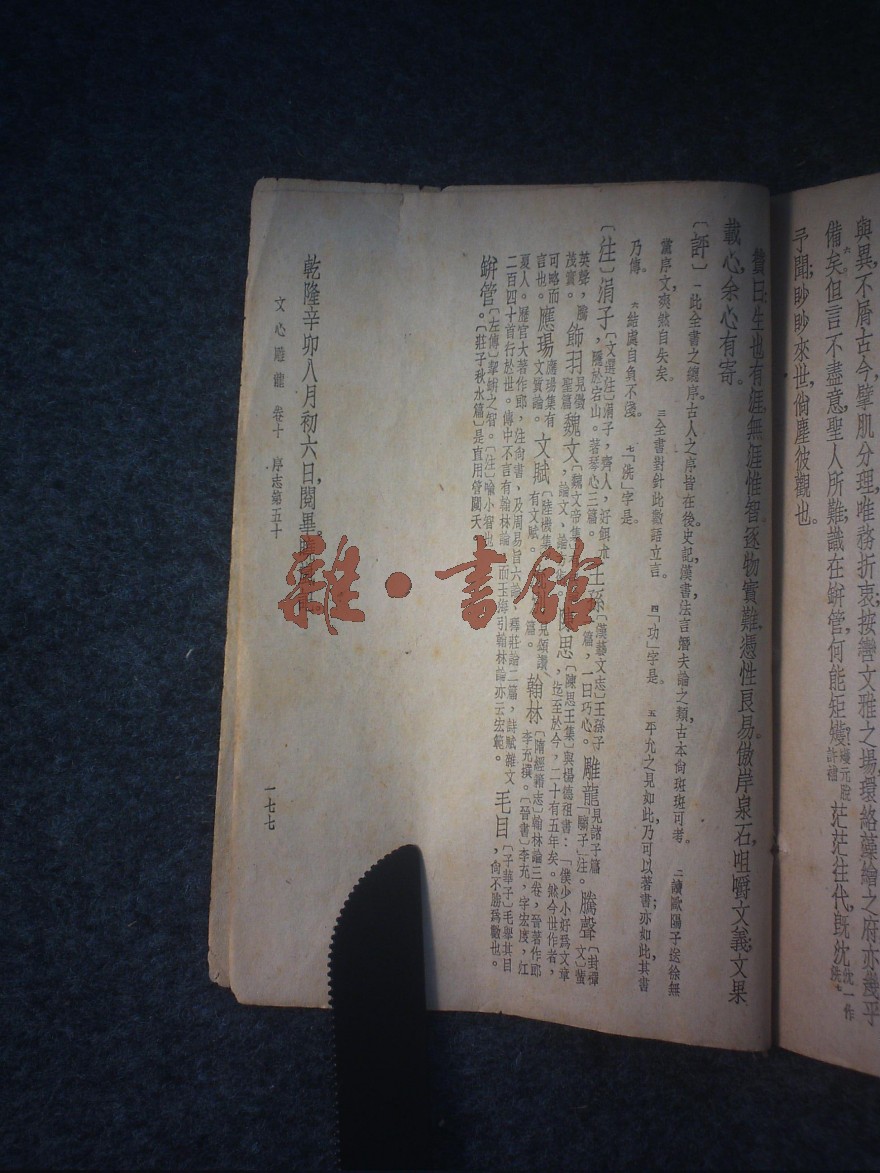 與異，不屑古今，擘肌分理，唯務折衷。按轡文雅之場，環絡藻繪之府，亦幾乎
備矣。但言不盡意，聖人所難，識在缾管，何能矩矱。茫茫往代，既沈
予聞；眇眇來世，倘塵彼觀也。
贊曰：生也有涯，無涯惟智。逐物實難，憑性良易。傲岸泉石，咀嚼文義。文果
載心，余心有寄。
〔評〕一此全書之總序。古人之序皆在後，史記、漢書、法言、潛夫論之類，古本尙斑斑可考。 二讀歐陽子送徐無
黨序文，爽然自失矣。 三全書對針此數語立言。 四「功」字是。 五平允之見如此，乃可以著書；亦如此，其書
乃傳。 六結處自負不淺。 七「洗」字是。
〔注〕涓子〔文選注〕涓子，齊人，好餌，隱於宕山。著琴心三篇。 王孫〔漢藝文志〕王孫子篇，一曰巧心。 雕龍見諸子篇「騶子」注。 騰聲〔封禪文〕蜚
英聲，騰茂實。 飾羽見徵聖篇 魏文〔魏文帝集〕論文，思〔陳思王集〕與楊德祖書：「僕少小好爲文章，迄至於今，二十有五年矣。然今世作者，
可略而言也。 應瑒應瑒集有文質論。 文賦〔陸機集〕有文賦。 見頌讚篇。 翰林〔隋經籍志〕翰林論三卷，晉著作郎李充撰。〔晉書〕李充，字宏度，江
夏人。歷官大著作郎，注尙書，及周易旨六論，釋莊論二篇，詩賦雜文
二百四十首行於世。傳中不言有翰林論，而玉海引翰林論亦云宏範。 毛目〔子華子〕毛舉其目，尙不勝爲數也。
缾管。〔左傳〕挈缾之智。〔注〕喻小智也。〔莊子秋水篇〕是直用管闚天
乾隆辛卯八月初六日，閱畢。
文心雕龍 卷十 序志第五十
一七七
雜·書館